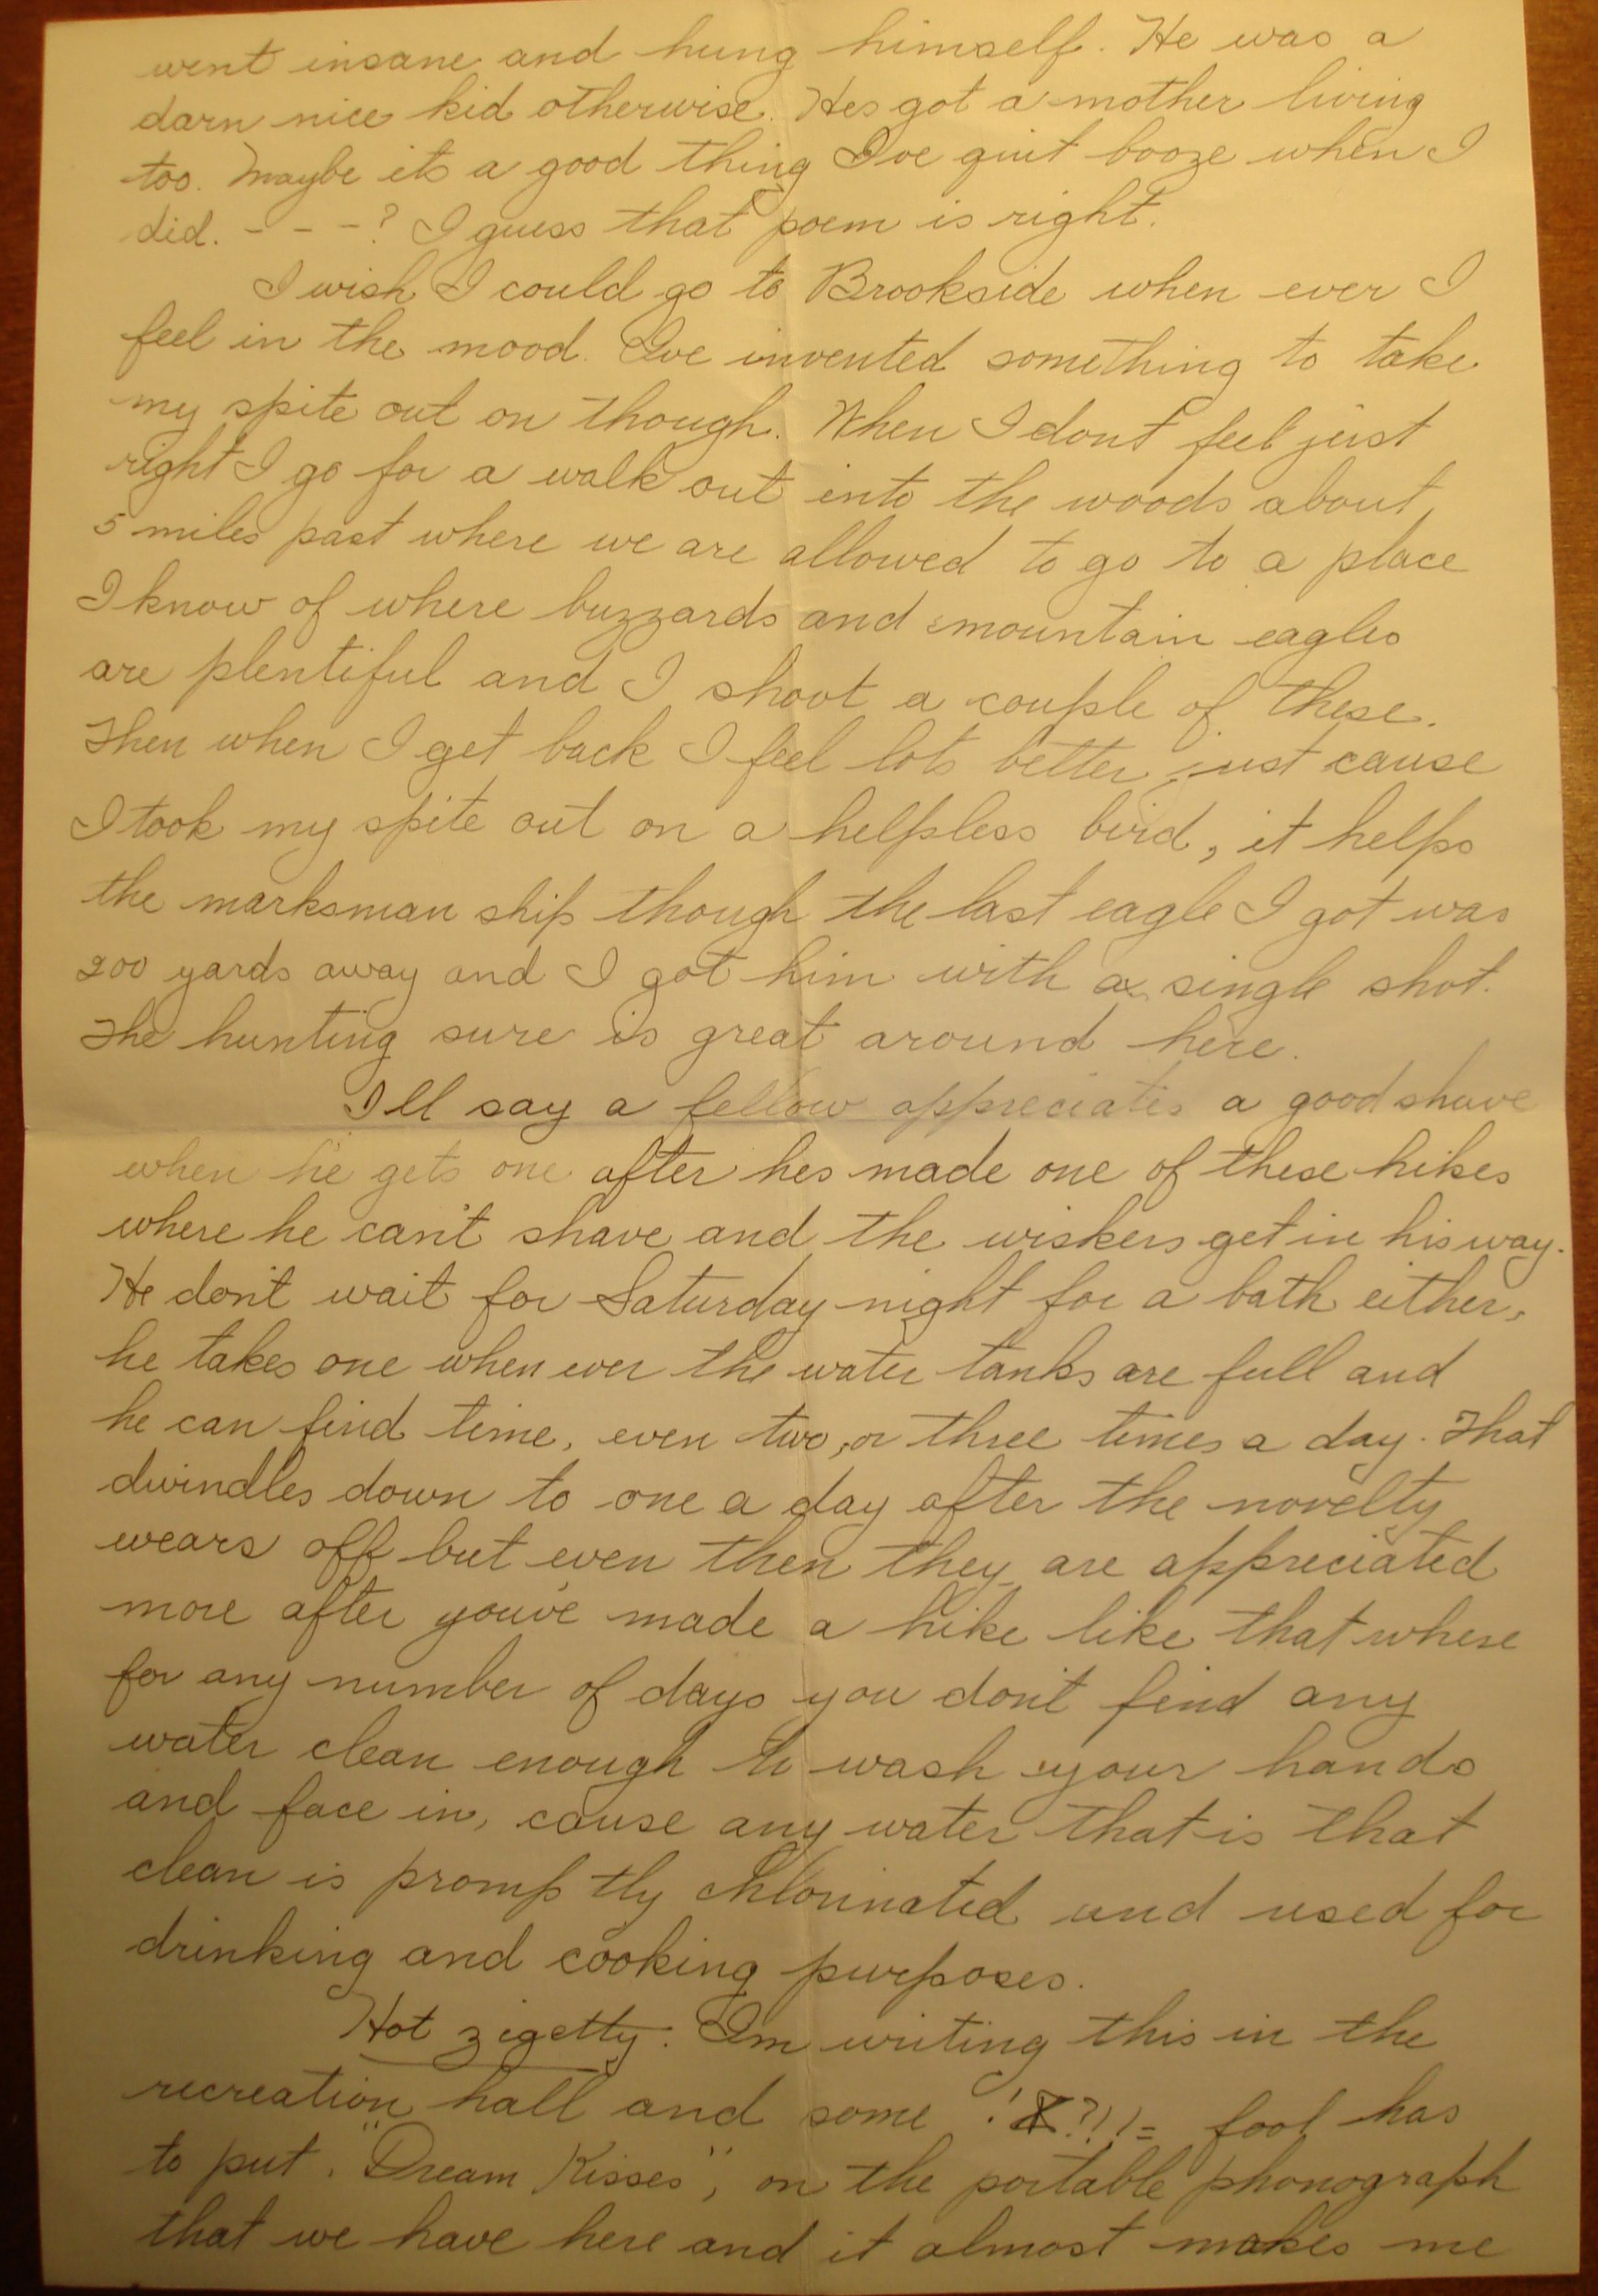 went insane and hung himself. He was a
darn nice kid otherwise. Hes got a mother living
too. Maybe its a good thing I've quit booze when I
did. - - - ? I guess that poem is right.
I wish I could go to Brookside when ever I
feel in the mood. I've invented something to take
my spite out on though. When I dont feel just
right I go for a walk out into the woods about
5 miles past where we are allowed to go to a place
I know of where buzzards and mountain eagles
are plentiful and I shoot a couple of these.
Then when I get back I feel lots better just cause
I took my spite out on a helpless bird, it helps
the marksman ship though the last eagle I got was
200 yards away and I got him with a single shot.
The hunting sure is great around here.
I'll say a fellow appreciates a good shave
when he gets one after hes made one of these hikes
where he can't shave and the wiskers get in his way.
He don't wait for Saturday night for a bath either,
he takes one when ever the water tanks are full and
he can find time, even two, or three times a day. That
dwindles down to one a day after the novelty
wears off but even then they are appreciated
more after you've made a hike like that where
for any number of days you don't find any
water clean enough to wash your hands
and face in, cause any water that is that
clean is promptly chlorinated and used for
drinking and cooking purposes.
Hot zigetty. I'm writing this in the
recreation hall and some !X?!!= fool has
to put "Dream Kisses", on the portable phonograph
that we have here and it almost makes me